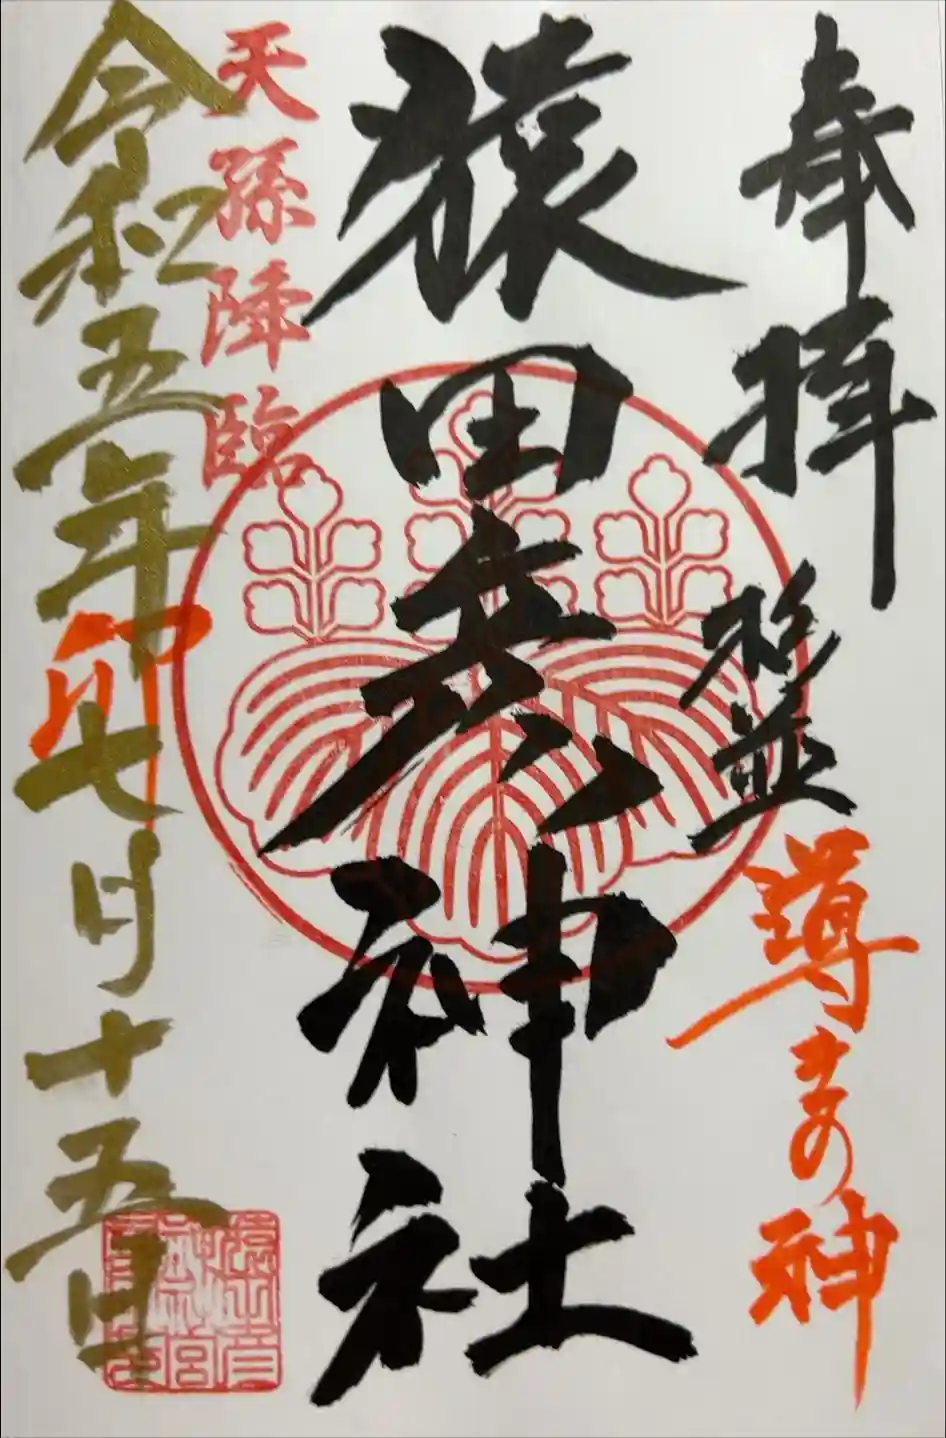 奉拝
杉並
導きの神
猿田彦神社
天孫降臨
令和五年七月十五日
卯